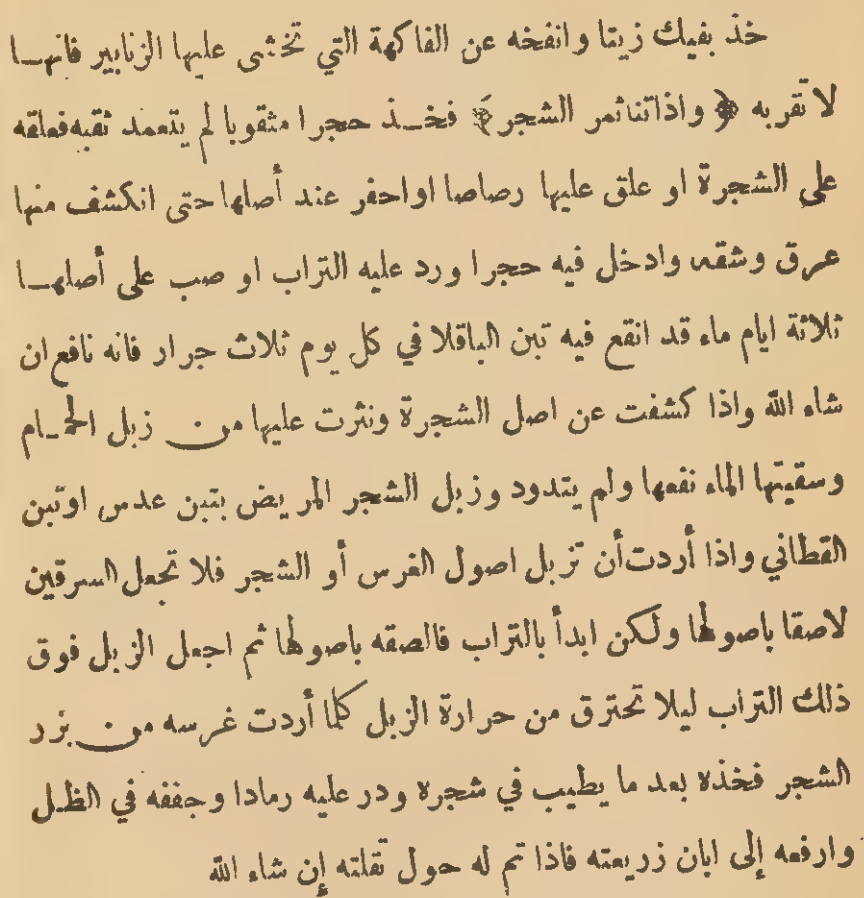 خذ بفيك زيتا وانفخه عن الفاكهة التي تخشى عليها الزنابير فانهـا
لا تقربه ﴿ واذا تناثمر الشجر ﴾ فخـذ حجرا مثقوبا لم يتعمد ثقبه فعلقه
على الشجرة او علق عليها رصاصا او احفر عند أصلها حتى انكشف منها
عرق وشقه وادخل فيه حجرا ورد عليه التراب او صب على أصلهـا
ثلاثة ايام ماء قد انقع فيه تبن الباقلا في كل يوم ثلاث جرار فانه نافع ان
شاء الله واذا كشفت عن اصل الشجرة ونثرت عليها من زبل الحمـام
وسقيتها الماء نفعها ولم يتدود وزبل الشجر المريض بتبن عدس اوتبن
القطاني واذا أردت أن تزبل اصول الغرس أو الشجر فلا تجعل السرقين
لاصقا باصولها ولكن ابدأ بالتراب فالصقه باصولها ثم اجعل الزبل فوق
ذلك التراب ليلا تحترق من حرارة الزبل كلما أردت غرسه من بزر
الشجر فخذه بعد ما يطيب في شجره ودر عليه رمادا وجففه في الظل
وارفعه إلى ابان زريعته فاذا تم له حول نقلته إن شاء الله